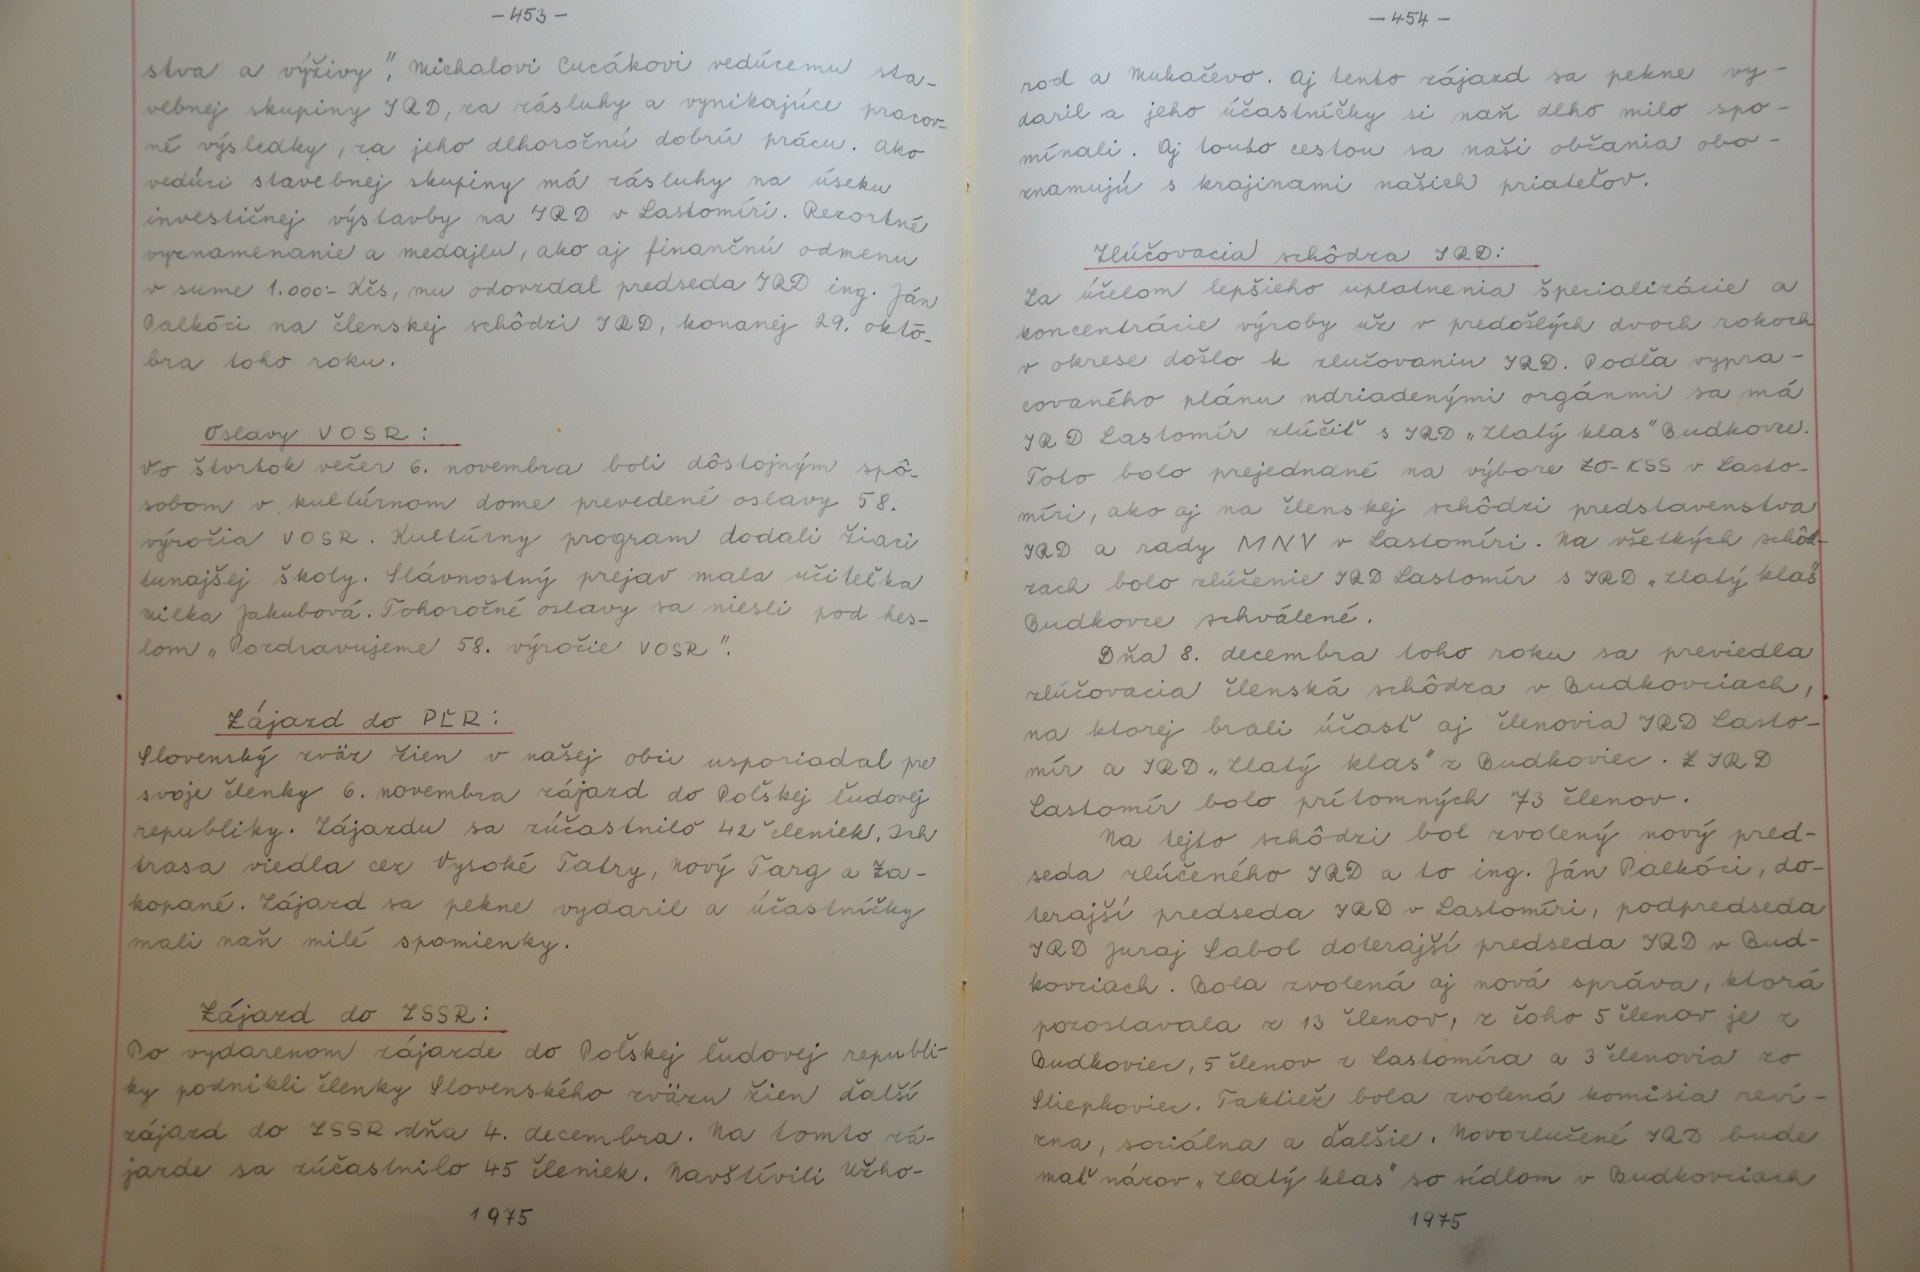 -453-
stva a výživy", Michalovi Cucákovi vedúcemu sta-
vebnej skupiny JRD, za zásluhy a vynikajúce pracov-
né výsledky, za jeho dlhoročnú dobrú prácu. Ako
vedúci stavebnej skupiny má zásluhy na úseku
investičnej výstavby na JRD v Lastomíri. Rezortné
vyznamenanie a medajlu, ako aj finančnú odmenu
v sume 1.000:- Kčs, mu odovzdal predseda JRD ing. Ján
Palkóci na členskej schôdzi JRD, konanej 29. októ-
bra toho roku.
Oslavy VOSR:
Vo štvrtok večer 6. novembra boli dôstojným spô-
sobom v kultúrnom dome prevedené oslavy 58.
výročia VOSR. Kultúrny program dodali žiaci
tunajšej školy. Slávnostný prejav mala učiteľka
Milka Jakubová. Tohoročné oslavy sa niesli pod hes-
lom „Pozdravujeme 58. výročie VOSR".
Zájazd do PĽR:
Slovenský zväz žien v našej obci usporiadal pre
svoje členky 6. novembra zájazd do Poľskej ľudovej
republiky. Zájazdu sa zúčastnilo 42 členiek. Ich
trasa viedla cez Vysoké Tatry, Nový Targ a Za-
kopané. Zájazd sa pekne vydaril a účastníčky
mali naň milé spomienky.
Zájazd do ZSSR:
Po vydarenom zájazde do Poľskej ľudovej republi-
ky podnikli členky Slovenského zväzu žien ďalší
zájazd do ZSSR dňa 4. decembra. Na tomto zá-
jazde sa zúčastnilo 45 členiek. Navštívili Užho-
1975
-454-
rod a Mukačevo. Aj tento zájazd sa pekne vy-
daril a jeho účastníčky si naň dlho milo spo-
mínali. Aj touto cestou sa naši občania obo-
znamujú s krajinami našich priateľov.
Zlúčovacia schôdza JRD:
Za účelom lepšieho uplatnenia špecializácie a
koncentrácie výroby už v predošlých dvoch rokoch
v okrese došlo k zlučovaniu JRD. Podľa vypra-
covaného plánu ndriadenými orgánmi sa má
JRD Lastomír zlúčiť s JRD „Zlatý klas" Budkovce.
Toto bolo prejednané na výbore ZO-KSS v Lasto-
míri, ako aj na členskej schôdzi predstavenstva
JRD a rady MNV v Lastomíri. Na všetkých schôd-
zach bolo zlúčenie JRD Lastomír s JRD „Zlatý klas"
Budkovce schválené.
Dňa 8. decembra toho roku sa previedla
zlúčovacia členská schôdza v Budkovciach,
na ktorej brali účasť aj členovia JRD Lasto-
mír a JRD „Zlatý klas" z Budkoviec. Z JRD
Lastomír bolo prítomných 73 členov.
Na tejto schôdzi bol zvolený nový pred-
seda zlúčeného JRD a to ing. Ján Palkóci, do-
terajší predseda JRD v Lastomíri, podpredseda
JRD Juraj Labol doterajší predseda JRD v Bud-
kovciach. Bola zvolená aj nová správa, ktorá
pozostavala z 13 členov, z čoho 5 členov je z
Budkoviec, 5 členov z Lastomíra a 3 členovia zo
Sliepkoviec. Taktiež bola zvolená komisia reví-
zna, sociálna a ďalšie. Novozlučené JRD bude
mať názov „Zlatý klas" so sídlom v Budkovciach
1975